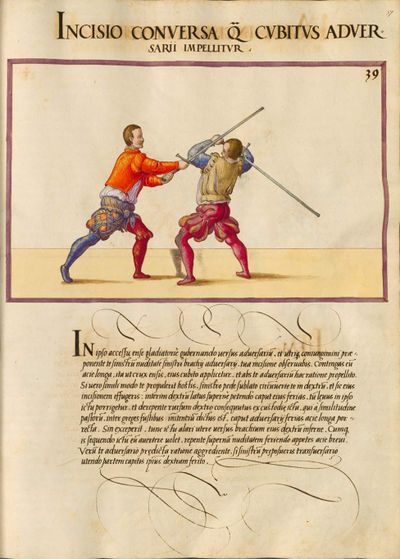 INCISIO CONVERSA Q̃ CVBITVS ADVER
SARII IMPELLITVR.
37
39
IN ipso accessu, ense gladiatorie gubernando versus adversariũ, et utriq, coniunc
ponente te sinistrũ nuditate sinistri brachy adversary, tua incisione observabis. Contingas eũ
acie longa, ita ut crux ensis, eius cubito applicetur, et abs te adversarius hac ratione propellitor.
Si vero simili modo te propulerit hostis, sinistro pede sublato circuiverte te in dextrũ, et sic eius
incisionem effugeris: interim dextru latus superne petendo caput eius ferias,
ictu porrigetur, et de repente rursum dextro consequutus
pastoru, inter progressibus imitatiõe dictus est, caput adversary ferias acie longa por
recta. Sin exceperit, tunc ictu alari utere versus brachium eius dextrũ inferne. Cumq,
is sequendo ictũ eũ avertere volet, repente supernũ nuditatem feriendo appetes acie brevi.
Verũ te adversario predicta ratione aggrediente, si sinistrũ preposueris transversario
utendo partem capitis ipsius dextram ferito.